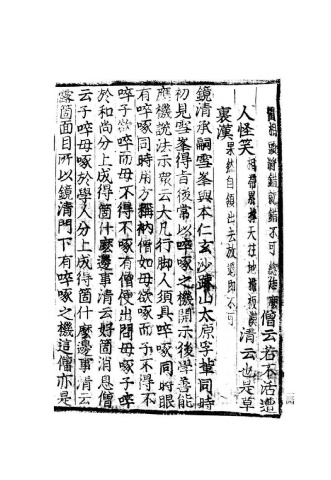 買帽相頭將錯就錯不可總恁麼僧云若不活遭
人怪笑相帶累撐天拄地擔板漢清云也是草
裏漢果然自領出去放過即不可
鏡清承嗣雪峯與本仁玄沙疎山太原孚輩同時
初見雪峯得旨後常以啐啄之機開示後學善能
應機說法示衆云大凡行脚人須具啐啄同時眼
有啐啄同時用方稱衲僧如母欲啄而子不得不
啐子欲啐而母不得不啄有僧便出問母啄子啐
於和尚分上成得箇什麼邊事清云好箇消息僧
云子啐母啄於學人分上成得箇什麼邊事清云
露箇面目所以鏡清門下有啐啄之機這僧亦是